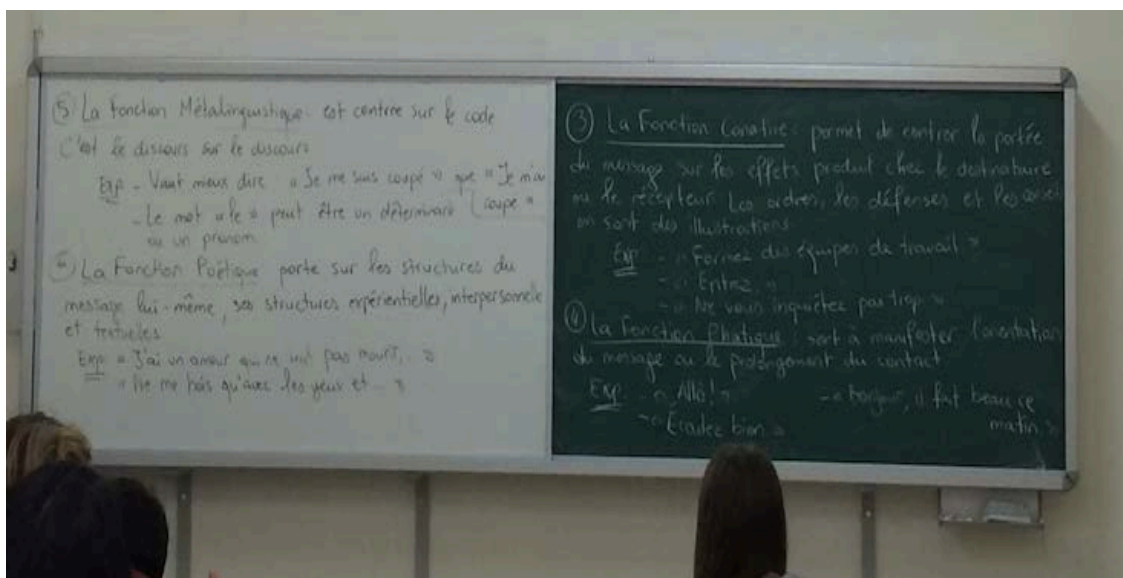 ⑤ La Fonction Métalinguistique : est centrée sur le code
C'est le discours sur le discours
Exp - Vaut mieux dire « Je me suis coupé » que « Je m'ai
coupé »
- Le mot « le » peut être un déterminant
ou un pronom
La Fonction Poétique porte sur les structures du
message lui-même, ses structures expérientielles, interpersonnelle
et textuelles
Exp « J'ai un amour qui ne veut pas mourir... »
« Ne me bois qu'avec les yeux et ... »
③ La Fonction Conative : permet de centrer la portée
du message sur les effets produit chez le destinataire
ou le récepteur Les ordres, les défenses et les
sont des illustrations
Exp - « Formez des équipes de travail »
- « Entrez »
- « Ne vous inquiétez pas trop »
④ La Fonction Phatique : sert à manifester l'orientation
du message ou le prolongement du contact
Exp - « Allô ! » - « Bonjour, il fait beau ce
matin »
- « Écoutez bien »